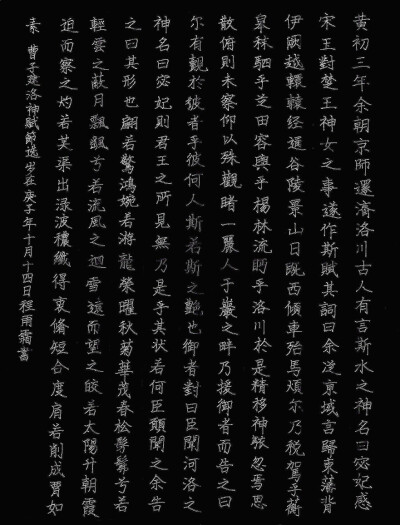 黃初三年余朝京師還濟洛川古人有言斯水之神名曰宓妃感
宋玉對楚王神女之事遂作斯賦其詞曰余從京域言歸東藩背
伊闕越轘轅經通谷陵景山日既西傾車殆馬煩爾乃稅駕乎蘅
皋秣駟乎芝田容與乎楊林流眄乎洛川於是精移神駭忽焉思
散俯則未察仰以殊觀睹一麗人于巖之畔乃援御者而告之曰
尔有覿於彼者乎彼何人斯若斯之艷也御者對曰臣聞河洛之
神名曰宓妃則君王之所見無乃是乎其狀若何臣願聞之余告
之曰其形也翩若驚鴻婉若游龍榮曜秋菊華茂春松髣髴兮若
輕雲之蔽月飄颻兮若流風之迴雪遠而望之皎若太陽升朝霞
迫而察之灼若芙蕖出淥波穠纖得衷脩短合度肩若削成腰如
素 曹子建洛神賦節選歲在庚子年十月十四日程雨靄書